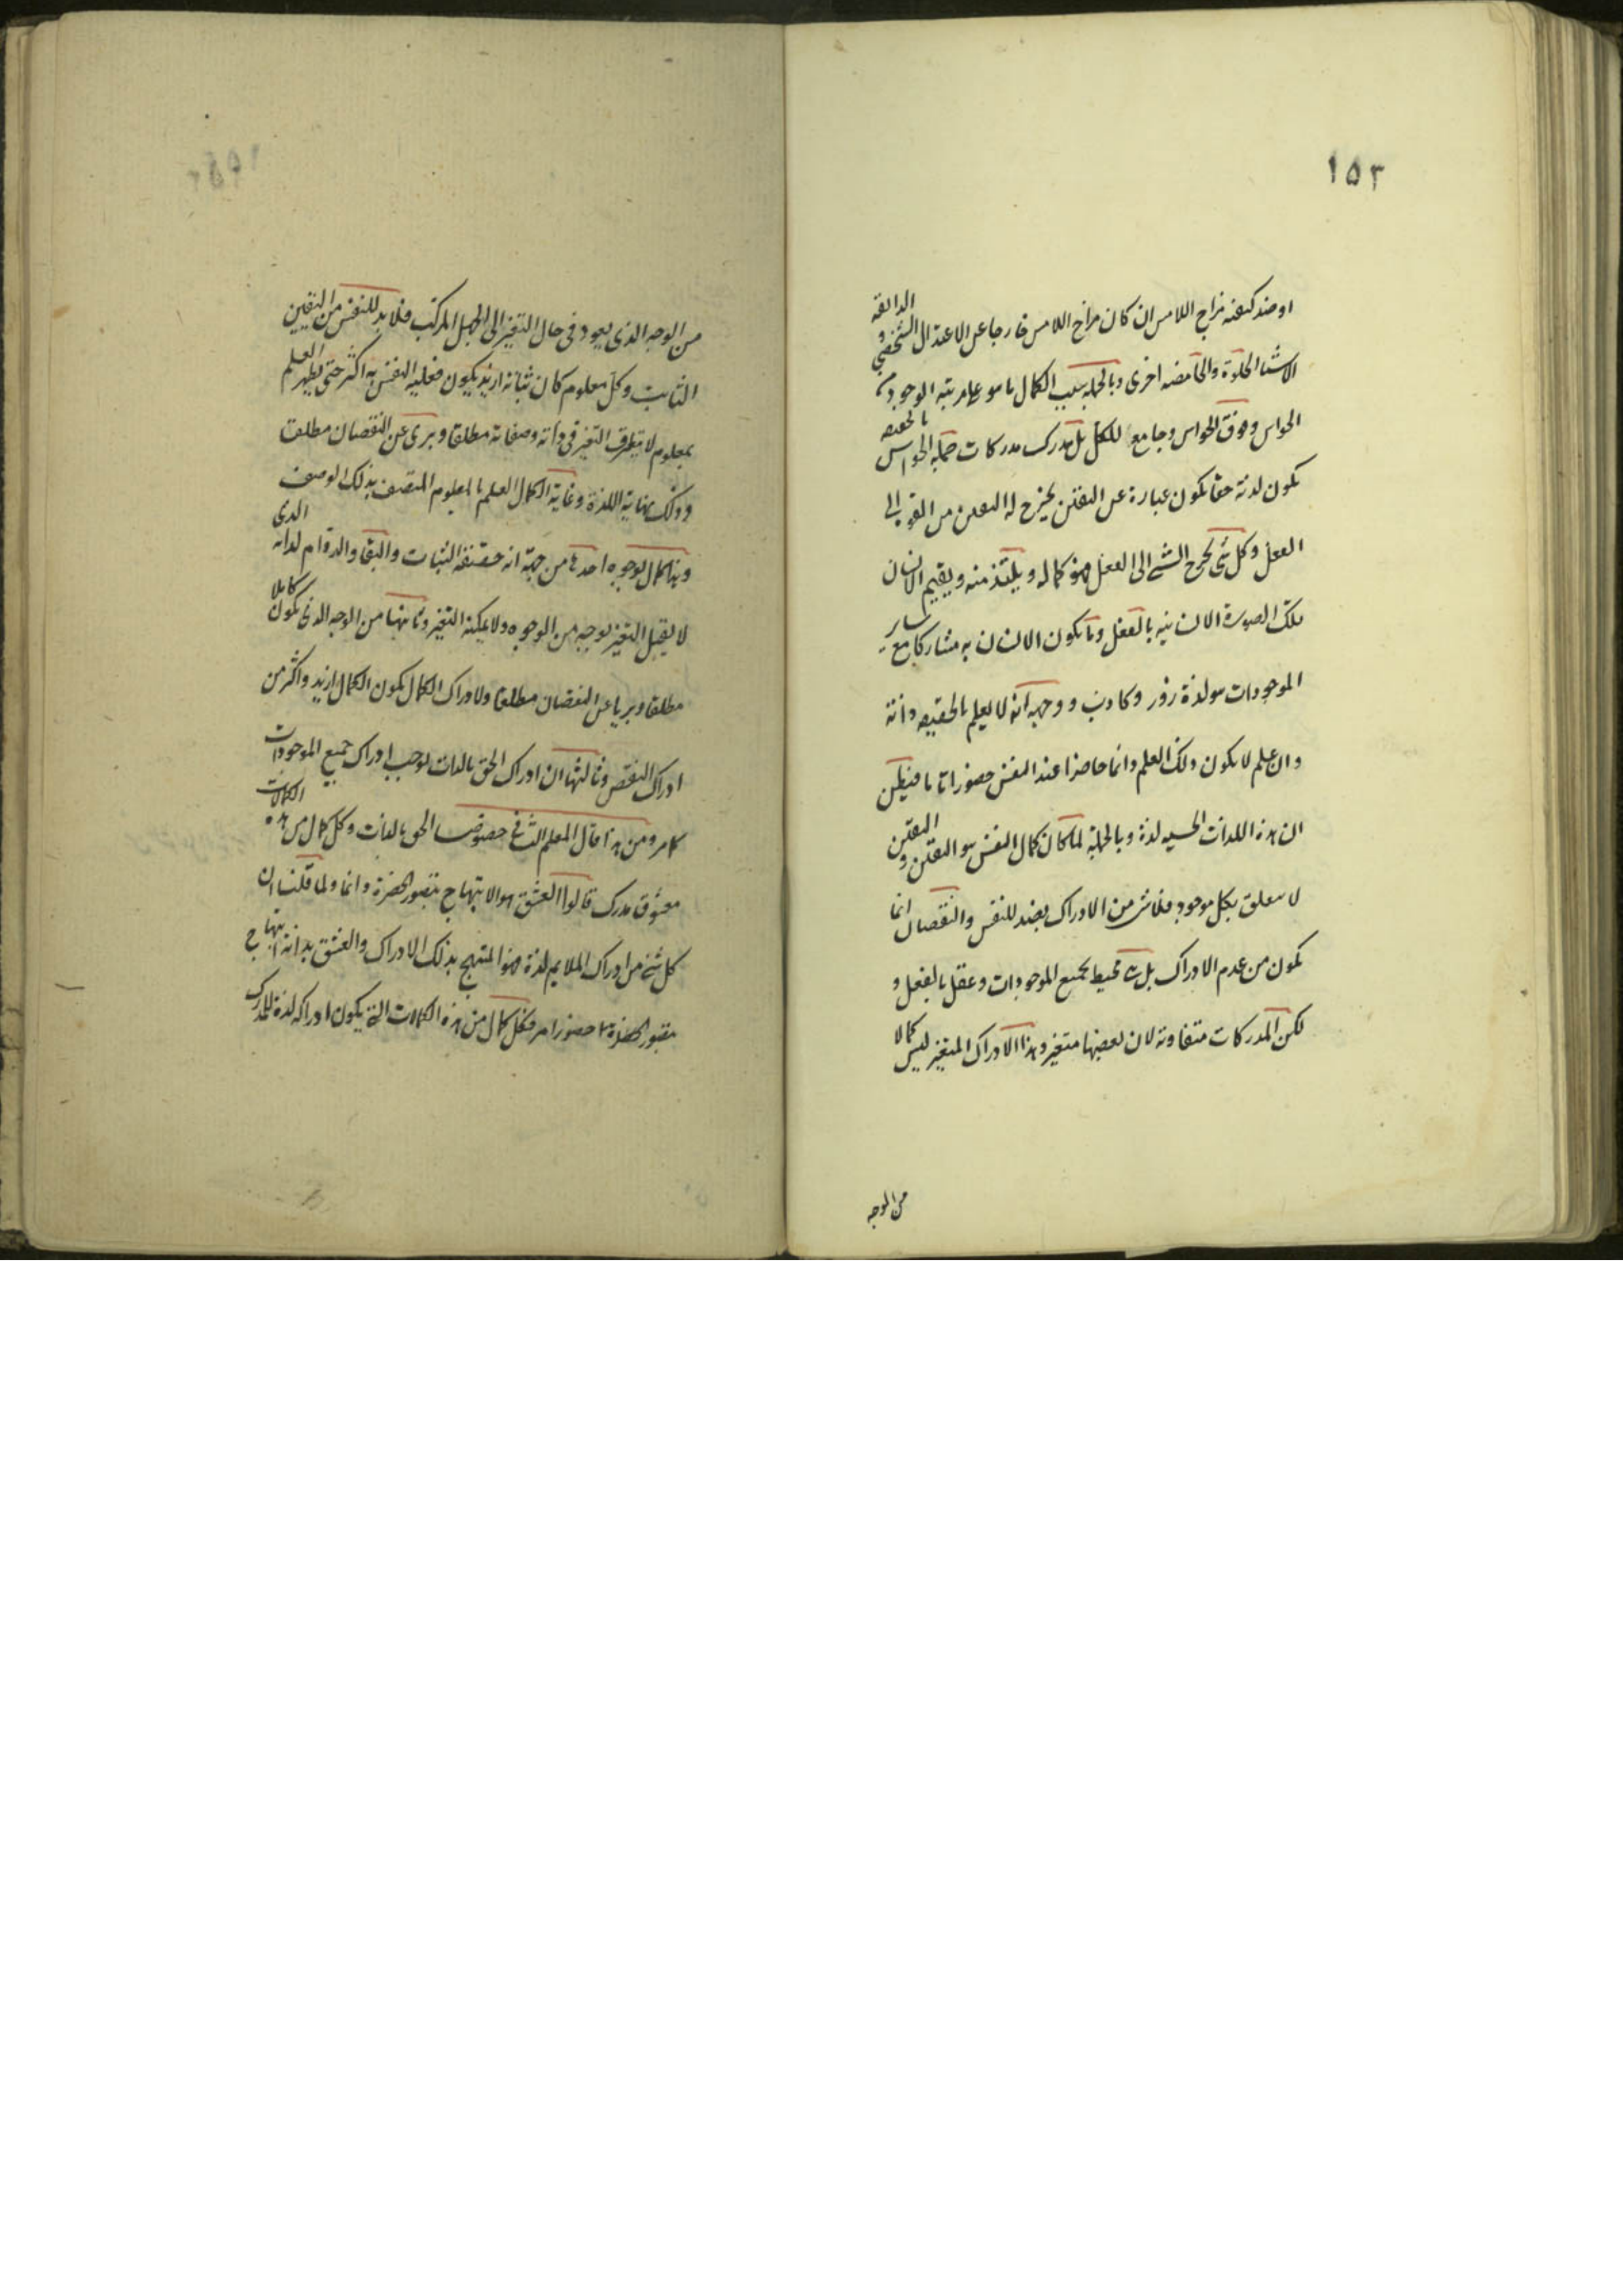 ١٥٢
او ضد كيفيته مزاج اللامس ان كان مزاج اللامس خارجا عن الاعتدال الشخصي و الذائقه
الاشيا الحلوة والحامضه اخرى وبالجمله سبب الكمال ما هو على مرتبه الوجود
الحواس وفوق الحواس وجامع للكل بل مدرك مدركات جمله الحواس بالحقيقه
يكون لذته حقا يكون عبارة عن اليقين يخرج له اليقين من القوة الى
الفعل وكل شئ يخرج الشئ الى الفعل فهو كماله ويلتذ منه ويقيم الانسان
تلك الصورة الانسانيه بالفعل وما يكون الانسان به مشاركا مع ساير
الموجودات هو لذة زور وكاذب ووجهه انه لا يعلم بالحقيقه ذاته
وان علم لا يكون ذلك العلم دائما حاضرا عند النفس حضورا تاما فيظن
ان هذه اللذات الحسيه لذة وبالجملة لما كان كمال النفس هو اليقين و اليقين
لا يتعلق بكل موجود فلا شئ من الادراك بضد للنفس والنقصان انما
يكون من عدم الادراك بل محيط بجميع الموجودات وعقل بالفعل و
لكن المدركات متفاوته لان بعضها متغير وهذا الادراك المتغير ليس كمالا
من الوجه
من الوجه الذي يعود في حال التغير الى الجهل المركب فلا بد للنفس من اليقين
الثابت وكل معلوم كان ثباته ازيد يكون فعليه النفس به اكثر حتى يظهر العلم
بمعلوم لا يتطرق التغير في ذاته وصفاته مطلقا وبرى عن النقصان مطلقا
وذلك نهاية اللذة وغاية الكمال العلم بالمعلوم المتصف بذلك الوصف
وهذا كمال بوجوه احدها من جهة انه حقيقه الثبات والبقا والدوام لذاته الذى
لا يقبل التغير بوجه من الوجوه ولا يمكنه التغير وثانيها من الوجه الذى يكون كاملا
مطلقا وبريا عن النقصان مطلقا ولادراك الكمال يكون الكمال ازيد واكثر من
ادراك النقص وثالثها ان ادراك الحق بالذات يوجب ادراك جميع الموجودات
كما مر ومن هذا قال المعلم الثاني خصوصا الحق بالذات وكل كمال من هذه الكمالات
معشوق مدرك قالوا العشق هو الابتهاج بتصور الحضرة دائما ولما قلنا ان
كل شئ من ادراك الملايم لذة فهو المبتهج بذلك الادراك والعشق بذاته ابتهاج
بتصور الحضرة حضورا مر فكل كمال من هذه الكمالات التي يكون ادراكه لذة للمدرك